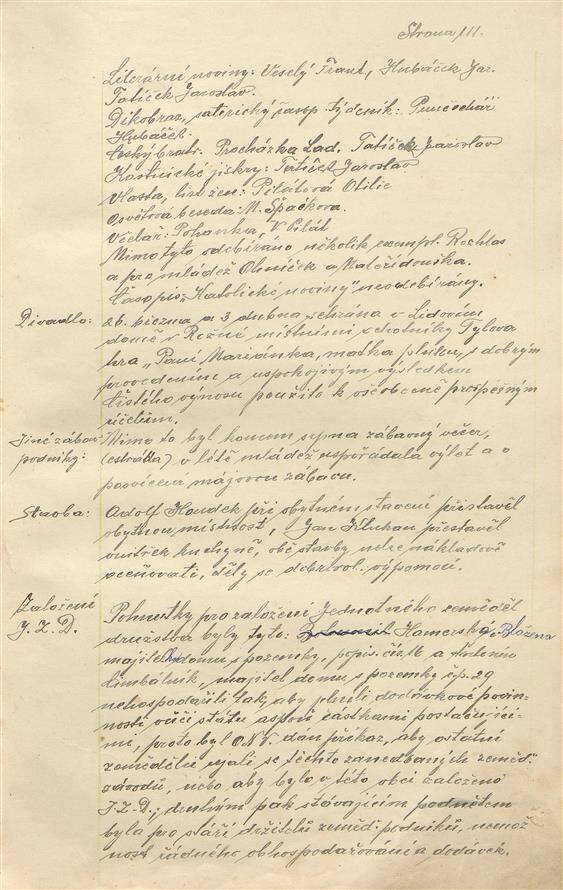 Strana 111.
Literární noviny: Veselý Frant., Hubáček Jar.
Tatíček Jaroslav.
Dikobraz, saterický časop. týdeník: Punčochář
Hubáček.
Český bratr: Procházka Lad. Tatíček Jaroslav
Kostnické jiskry: Tatíček Jaroslav
Vlasta, list žen: Pilátová Otilie
Osvětová beseda: M. Špačkova.
Včelař: Pohanka, V Pilát
Mimo tyto odebíráno několik exempl. Rozhlas
a pro mládež Ohníček a Mateřídouška.
Časopis "Katolické noviny" neodebírány.
Divadlo: 26. března a 3 dubna sehrána v Lidovém
domě v Rožné místními ochotníky Tylova
hra "Paní Mariánka, matka pluku, s dobrým
provedením a uspokojivým výsledkem
Čistého výnosu použito k všeobecně prospěšným
účelům.
Jiné zábav. podniky: Mimo to byl koncem srpna zábavný večer,
(estráda) v létě mládež uspořádala výlet a o
posvícení májovou zábavu.
Stavba: Adolf Houdek při obytném stavení přistavěl
obytnou místnost, Jan Klukan přestavěl
vnitřek kuchyně, obě stavby nelze nákladově
oceňovati, děly se dobrovol. výpomocí.
Založení J.Z.D. Pohnutky pro založení Jednotného zeměděl
družstva byly tyto: Hamerská Blažena
majitel domu s pozemky, popis. čís. 16 a Antonín
Cimbálník, majitel domu s pozemky č.p. 29
nehospodařili tak, aby plnili dodávkové povin-
nosti vůči státu aspoň částkami postačující-
mi, proto byl ONV. dán příkaz, aby ostatní
zemědělci ujali se těchto zanedbaných zeměd.
závodů, nebo aby bylo v této obci založeno
J.Z.D.; druhým pak stávajícím podnětem
byla pro stáří držitelů zeměd. podniků, nemož-
nost řádného obhospodařování a dodávek.